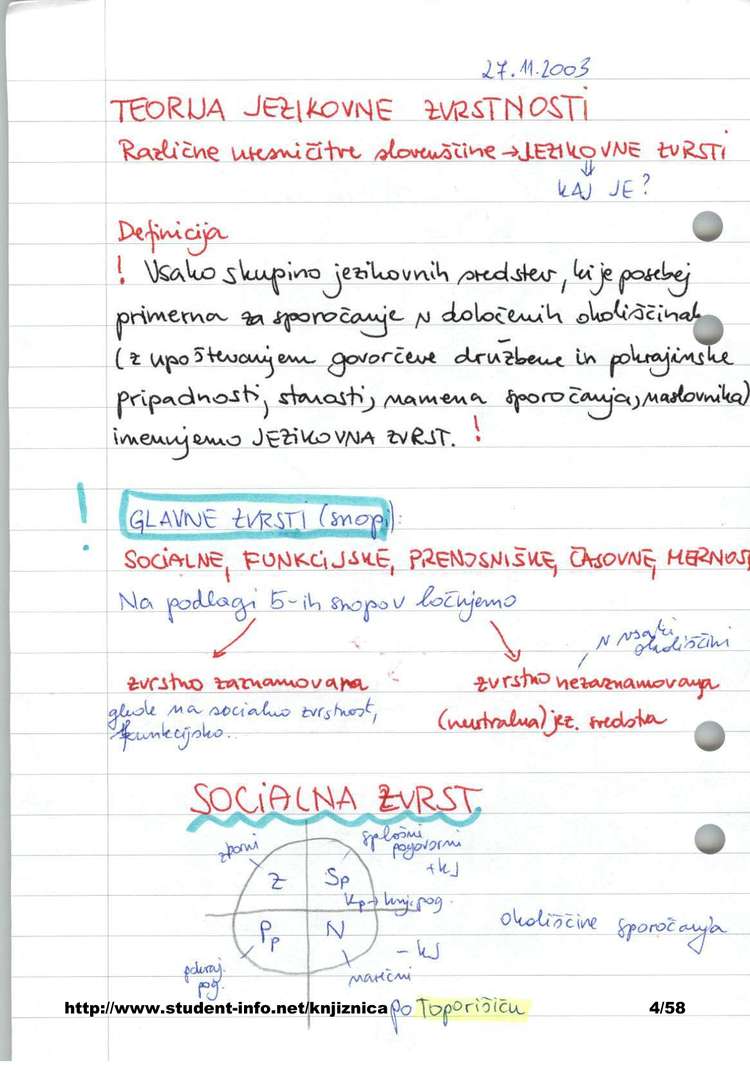 27.11.2003
TEORIJA JEZIKOVNE ZVRSTNOSTI
Različne uresničitve slovenščine → JEZIKOVNE ZVRSTI
⇓
KAJ JE?
Definicija
! Vsako skupino jezikovnih sredstev, ki je posebej
primerna za sporočanje v določenih okoliščinah
(z upoštevanjem govorčeve družbene in pokrajinske
pripadnosti, starosti, namena sporočanja, naslovnika)
imenujemo JEZIKOVNA ZVRST. !
! GLAVNE ZVRSTI (snopi):
SOCIALNE, FUNKCIJSKE, PRENOSNIŠKE, ČASOVNE, MERNOS
Na podlagi 5-ih snopov ločujemo
v vsaki
okoliščini
zvrstno zaznamovana
zvrstno nezaznamovana
glede na socialno zvrstnost,
funkcijsko..
(nevtralna) jez. sredstva
SOCIALNA ZVRST
zborni
splošni
pogovorni
+kJ
Z
Sp
Kp → knj. pog.
Pp
N
okoliščine sporočanja
- kJ
pokraj.
pog.
narečni
http://www.student-info.net/knjiznica
po Toporišiču
4/58